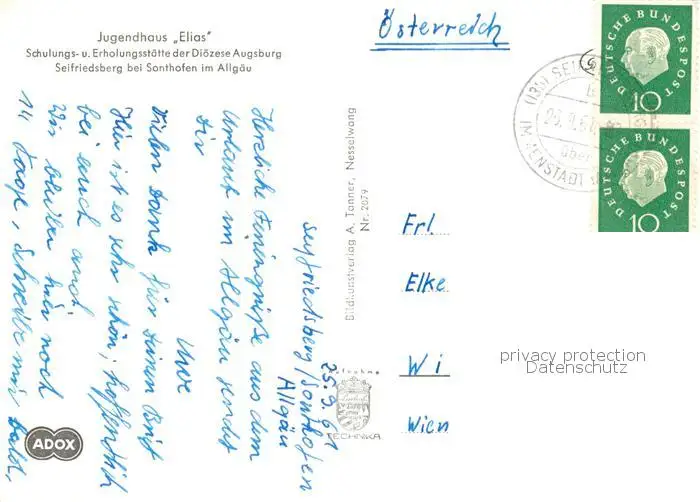 Jugendhaus „Elias"
Schulungs- u. Erholungsstätte der Diözese Augsburg
Seifriedsberg bei Sonthofen im Allgäu
Österreich
DEUTSCHE BUNDESPOST
10
DEUTSCHE BUNDESPOST
10
(13b) SEI
IMMENSTADT
über
Bildkunstverlag A. Tanner, Nesselwang
Nr. 2679
Seyfriedsberg/Sonthofen
Allgäu
25.9.61
Herzliche Feriengrüße aus dem
Urlaub im Allgäu sendet
Dir
Uwe
Vielen Dank für Deinen Brief
Hier ist es sehr schön; hoffentlich
bei euch auch!
Wir bleiben hier noch
14 Tage, schreibe mir bald,
Frl
Elke
Wi
Wien
privacy protection
Datenschutz
TECHNIKA
ADOX